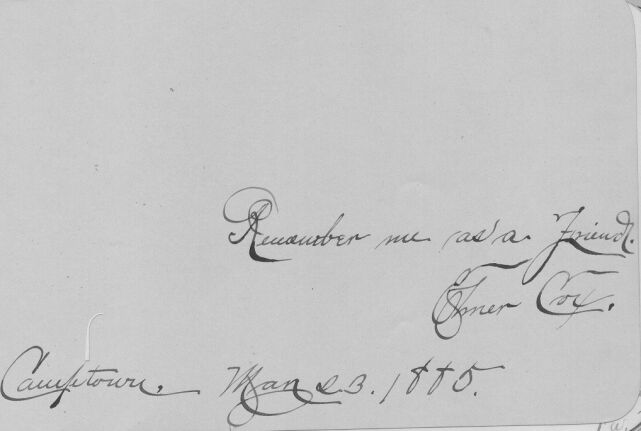 Remember me as a Friend.
Elmer Cox.
Camptown. Mar 23. 1885.